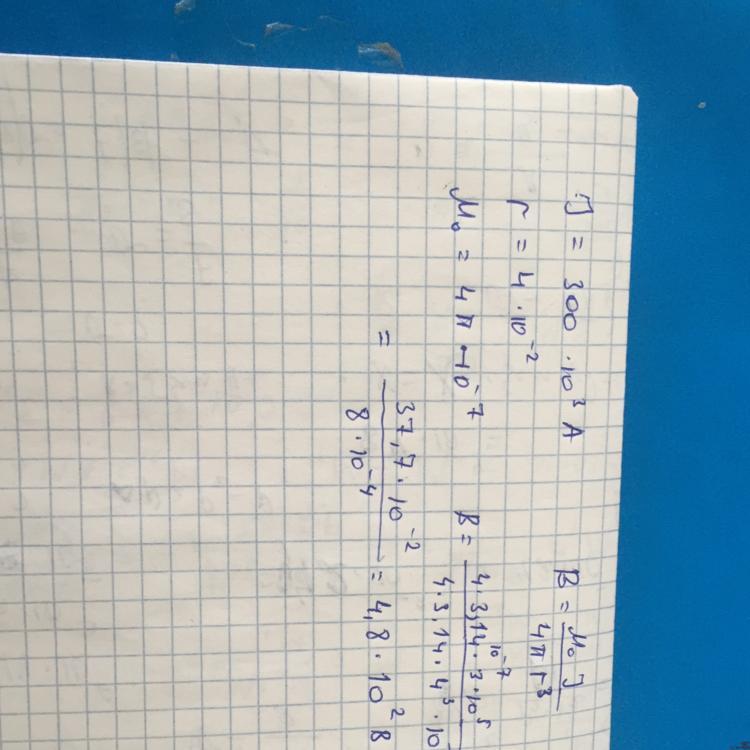 J = 300 · 10³ A
r = 4 · 10⁻²
μ₀ = 4π · 10⁻⁷
B = μ₀ J / 4π r³
B = 4 · 3,14 · 10⁻⁷ · 3 · 10⁵ / 4 · 3,14 · 4³ · 10
= 37,7 · 10⁻² / 8 · 10⁻⁴ = 4,8 · 10² 8